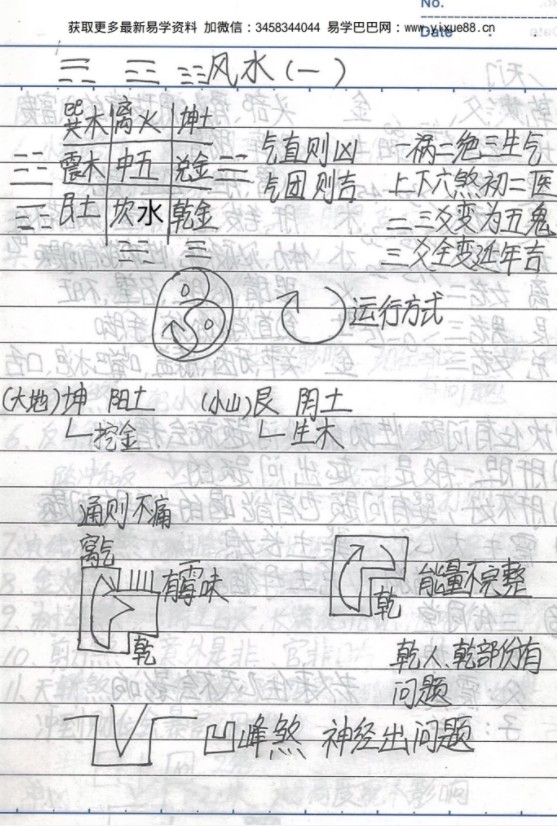 No.
Date
获取更多最新易学资料 加微信：3458344044 易学巴巴网：www.yixue88.cn
风水（一）
巽木 离火 坤土
震木 中五 兑金 气直则凶 一祸二绝三生气
气团则吉 上下六煞初二医
艮土 坎水 乾金 二三爻变为五鬼
三爻全变延年吉
运行方式
(大地) 坤 阳土 (小山) 艮 阴土
挖金 生木
通则不痛
离气
有霉味 能量不完整
乾 乾
乾人、乾部份有
问题
凹峰煞 神经出问题